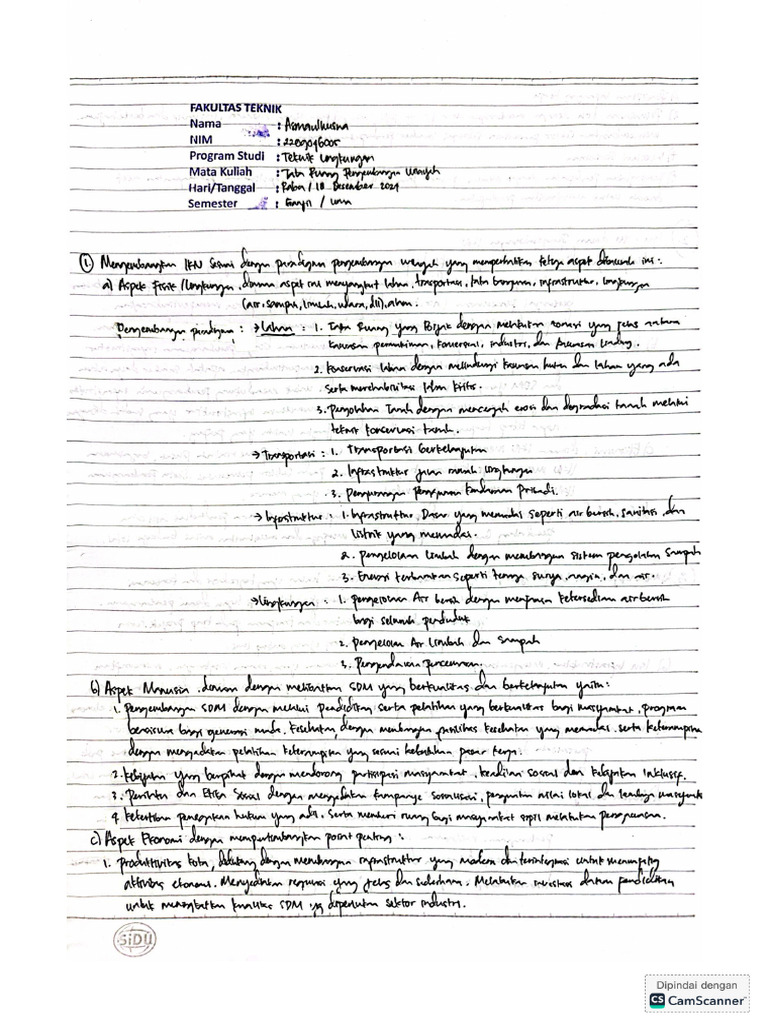 FAKULTAS TEKNIK
Nama : Asmaulhusna
NIM : 2209046005
Program Studi : Teknik Lingkungan
Mata Kuliah : Tata Ruang Pengembangan Wilayah
Hari/Tanggal : Rabu / 18 Desember 2024
Semester : Ganjil /
1. Mengembangkan IKN sesuai dengan paradigma pengembangan wilayah yang memperhatikan ketiga aspek dibawah ini :
a) Aspek Fisik / Lingkungan, dimana aspek ini menyangkut lahan, trasportasi, tata bangunan, infrastruktur, lingkungan
(air, sampah, limbah, udara, dll), alam.
Pengembangan paradigma : → Lahan : 1. Tata Ruang yang Bijak dengan melakukan zonasi yang jelas antara
kawasan permukiman, komersial, industri, dan kawasan lindung.
2. Konservasi lahan dengan melindungi kawasan hutan dan lahan yang ada
serta merehabilitasi lahan kritis.
3. Pengolahan Tanah dengan mencegah erosi dan degradasi tanah melalui
teknik konservasi tanah.
→ Transportasi : 1. Transportasi berkelanjutan
2. Infrastruktur jalan ramah lingkungan
3. Pengurangan Penggunaan Kendaraan Pribadi.
→ Infrastruktur : 1. Infrastruktur Dasar yang memadai seperti air bersih, sanitasi, dan
listrik yang memadai.
2. Pengelolaan limbah dengan membangun sistem pengolahan sampah
3. Energi terbarukan seperti tenaga surya, angin, dan air.
→ Lingkungan : 1. Pengelolaan Air bersih dengan menjamin ketersediaan air bersih
bagi seluruh penduduk
2. Pengelolaan Air Limbah dan Sampah
3. Pengendalian pencemaran.
b) Aspek Manusia, dimana dengan melibatkan SDM yang berkualitas dan berkelanjutan yaitu :
1. Pengembangan SDM dengan melalui pendidikan serta pelatihan yang berkualitas bagi masyarakat, program
beasiswa bagi generasi muda. Kesehatan, dengan membangun fasilitas kesehatan yang memadai, serta keterampilan
dengan mengadakan pelatihan keterampilan yang sesuai kebutuhan pasar kerja.
2. Kebijakan yang berpihak dengan mendorong partisipasi masyarakat, keadilan sosial dan kebijakan inklusif.
3. Perilaku dan Etika Sosial dengan mengadakan kampanye sosialisasi, penguatan nilai lokal dan lembaga masyarakat
4. Ketertiban penegakan hukum yang adil, serta memberi ruang bagi masyarakat sipil melakukan pengawasan.
c) Aspek Ekonomi dengan mempertimbangkan point penting :
1. Produktivitas kota, didukung dengan membangun infrastruktur yang modern dan terintegrasi untuk menunjang
aktivitas ekonomi. Menyediakan regulasi yang jelas dan sederhana. Melakukan investasi dalam pendidikan
untuk meningkatkan kualitas SDM yg diperlukan sektor industri.
SiDU
Dipindai dengan
CS CamScanner